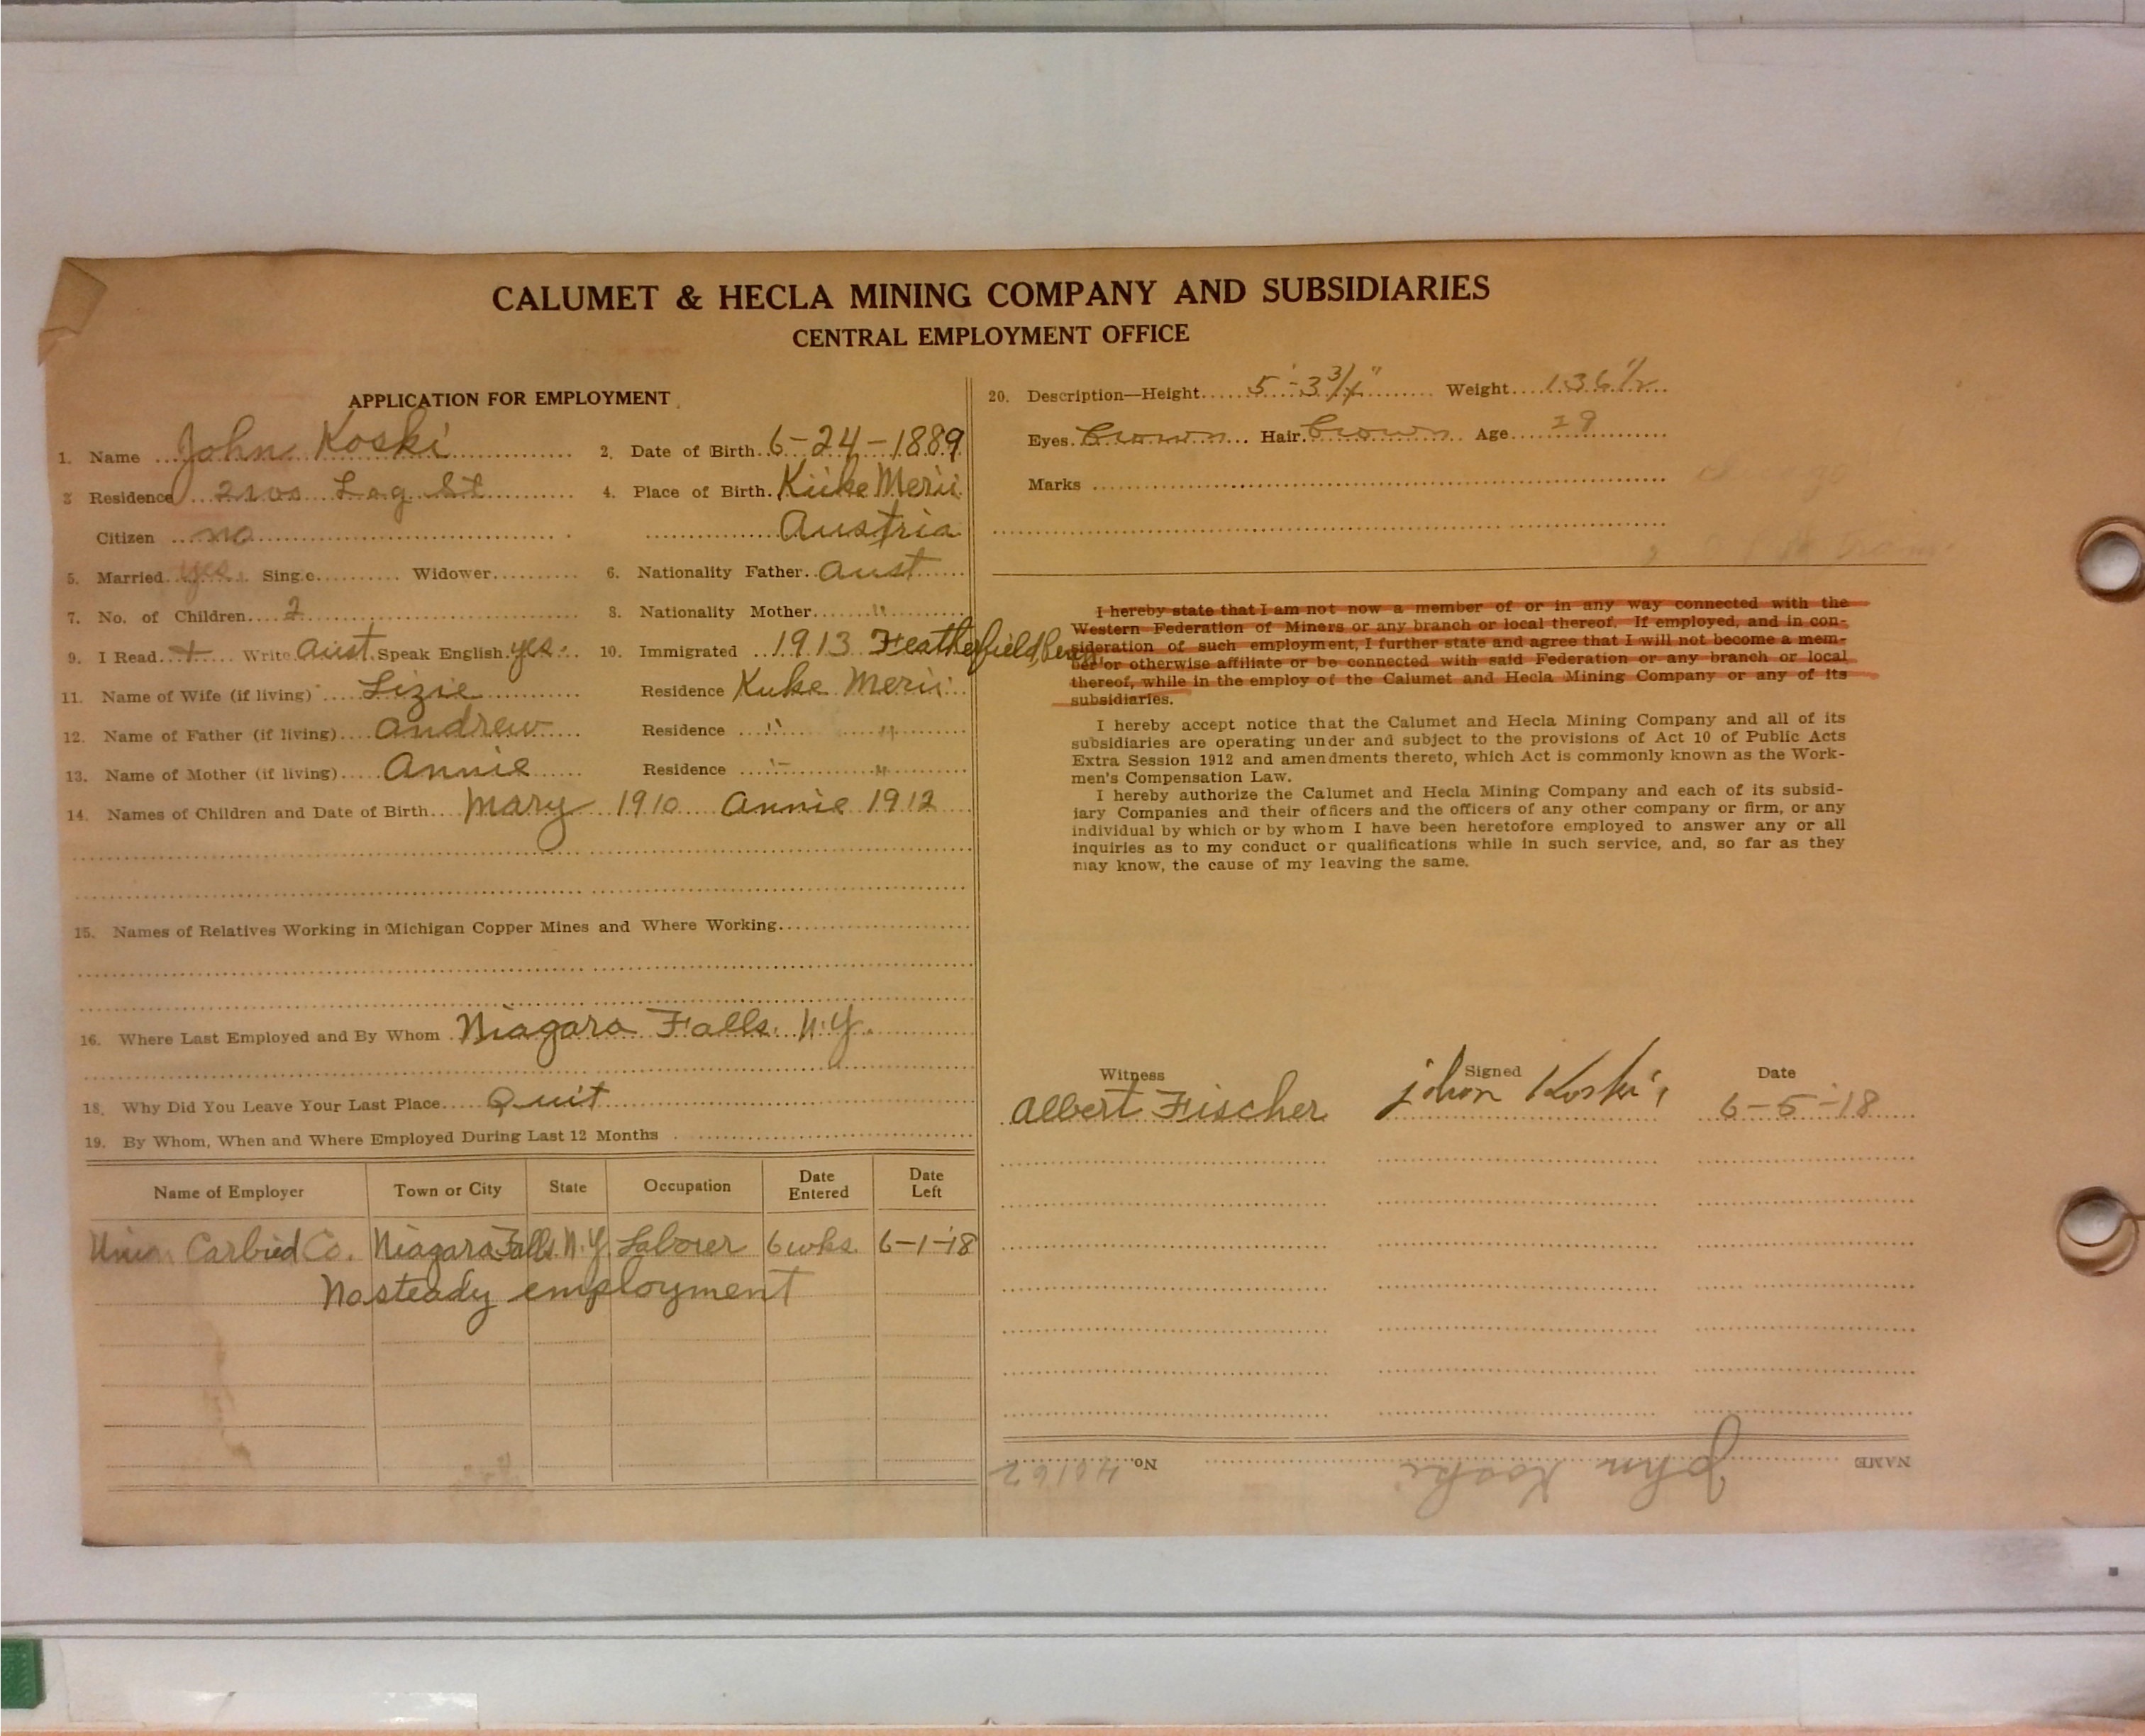 CALUMET & HECLA MINING COMPANY AND SUBSIDIARIES
CENTRAL EMPLOYMENT OFFICE
APPLICATION FOR EMPLOYMENT
1. Name John Koski 2. Date of Birth 6-24-1889
3 Residence Log St 4. Place of Birth. Kiike Merii
Citizen no Austria
5. Married yes Single Widower 6. Nationality Father Aust
7. No. of Children 2 8. Nationality Mother "
9. I Read + Write Aust Speak English yes. 10. Immigrated 1913 Featherfield,
11. Name of Wife (if living) Lizie Residence Kuke Merii
12. Name of Father (if living) Andrew Residence " "
13. Name of Mother (if living) Annie Residence " "
14. Names of Children and Date of Birth Mary 1910 Annie 1912
15. Names of Relatives Working in Michigan Copper Mines and Where Working
16. Where Last Employed and By Whom Niagara Falls. N.Y.
18. Why Did You Leave Your Last Place Quit
19. By Whom, When and Where Employed During Last 12 Months
Name of Employer Town or City State Occupation Date Entered Date Left
Union Carbied Co. Niagara Falls. N.Y. Laborer 6 wks. 6-1-18
No steady employment
20. Description—Height 5'-3 3/4" Weight 136 1/2
Eyes Brown Hair Brown Age 29
Marks
I hereby state that I am not now a member of or in any way connected with the
Western Federation of Miners or any branch or local thereof. If employed, and in con-
sideration of such employment, I further state and agree that I will not become a mem-
ber or otherwise affiliate or be connected with said Federation or any branch or local
thereof, while in the employ of the Calumet and Hecla Mining Company or any of its
subsidiaries.
I hereby accept notice that the Calumet and Hecla Mining Company and all of its
subsidiaries are operating under and subject to the provisions of Act 10 of Public Acts
Extra Session 1912 and amendments thereto, which Act is commonly known as the Work-
men's Compensation Law.
I hereby authorize the Calumet and Hecla Mining Company and each of its subsid-
iary Companies and their officers and the officers of any other company or firm, or any
individual by which or by whom I have been heretofore employed to answer any or all
inquiries as to my conduct or qualifications while in such service, and, so far as they
may know, the cause of my leaving the same.
Witness Signed Date
Albert Fischer john Koski 6-5-18
NAME John Koski No. 40162